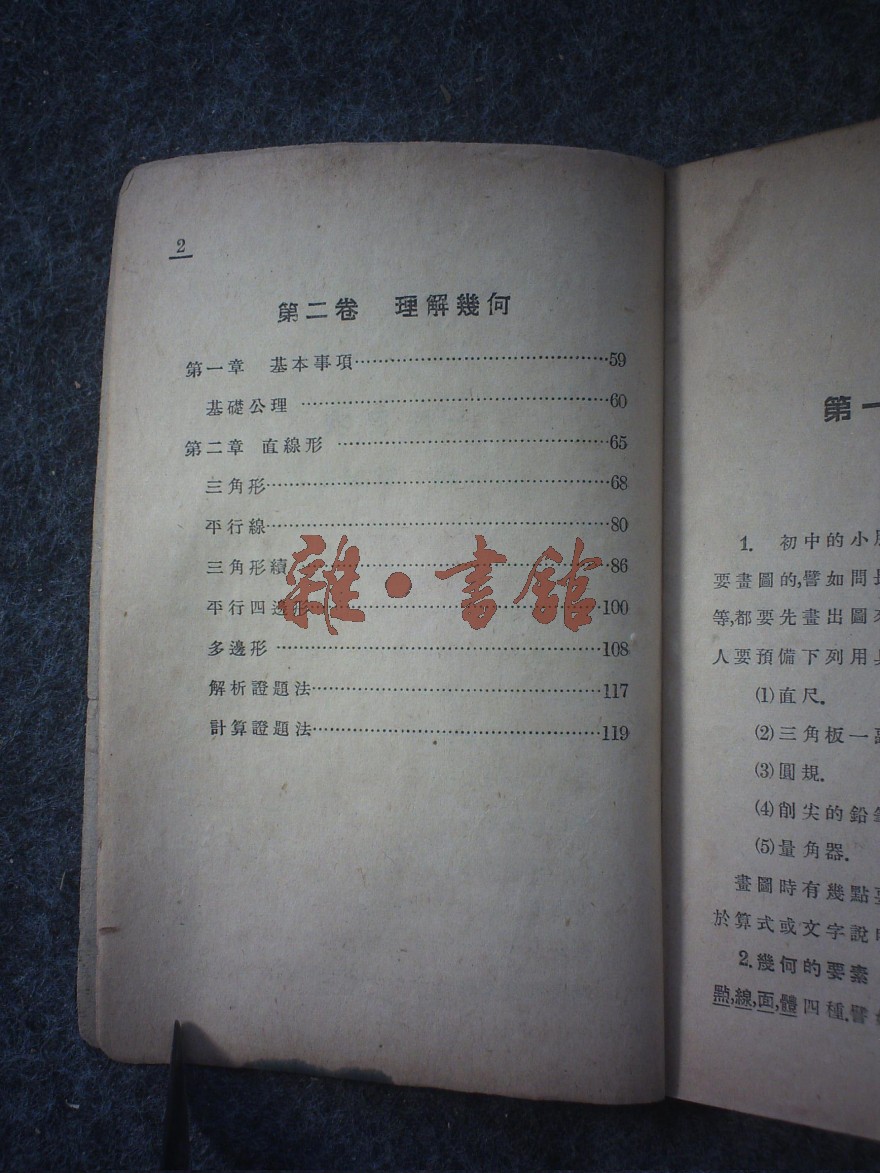 2
第二卷 理解幾何
第一章 基本事項……59
基礎公理……60
第二章 直線形……65
三角形……68
平行線……80
三角形續……86
平行四邊形……100
多邊形……108
解析證題法……117
計算證題法……119
雜·書館
第一
1. 初中的小
要畫圖的,譬如問
等,都要先畫出圖
人要預備下列用
(1)直尺.
(2)三角板一
(3)圓規.
(4)削尖的鉛
(5)量角器.
畫圖時有幾點
於算式或文字說
2.幾何的要素
點,線,面,體四種.譬